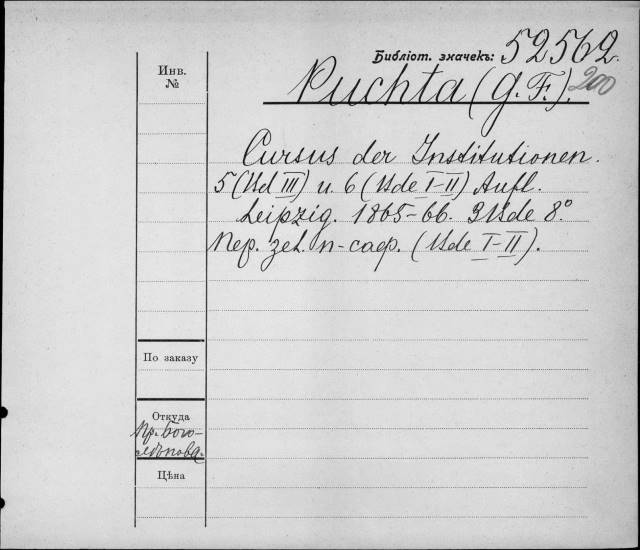 Библіот. значекъ: 52562.
Инв.
№
Puchta (G. F.). 200
Cursus der Institutionen.
5 (Bd III) u. 6 (Bde I-II) Aufl.
Leipzig. 1865-66. 3 Bde 8°.
Пер. зел. п-саф. (Bde I-II).
По заказу
Откуда
Пр. Бого-
лѣпова.
Цѣна